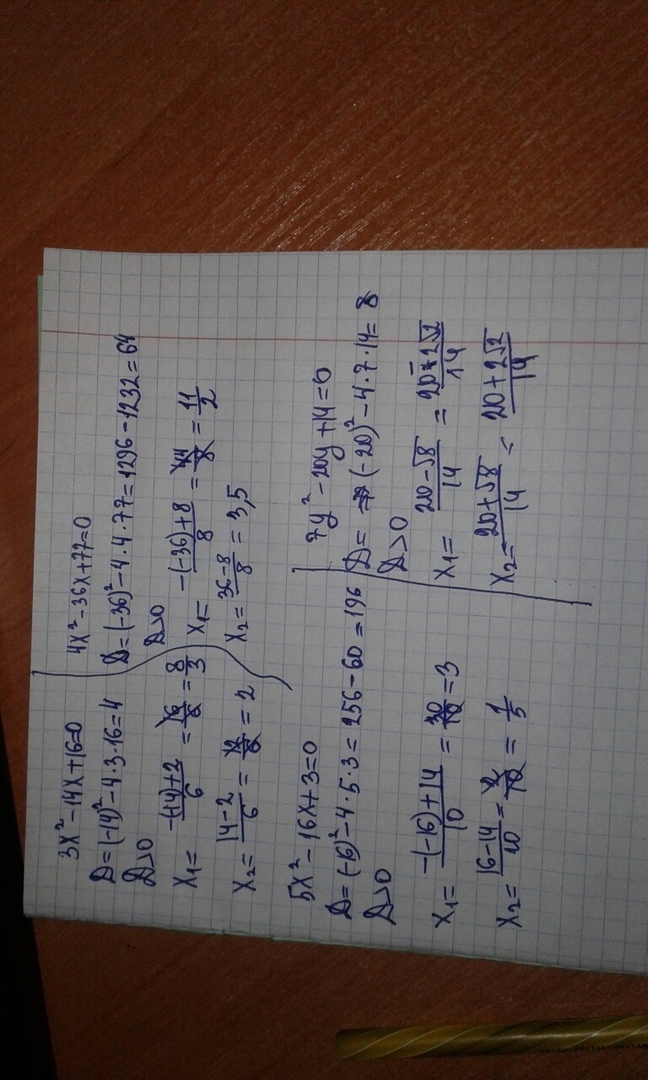 3x² - 14x + 16 = 0
D = (-14)² - 4 · 3 · 16 = 4
D>0
x₁ = -(-14)+2 / 6 = 16/6 = 8/3
x₂ = 14-2 / 6 = 12/6 = 2
4x² - 36x + 77 = 0
D = (-36)² - 4 · 4 · 77 = 1296 - 1232 = 64
D>0
x₁ = -(-36)+8 / 8 = 44/8 = 11/2
x₂ = 36-8 / 8 = 3,5
5x² - 16x + 3 = 0
D = (-16)² - 4 · 5 · 3 = 256 - 60 = 196
D>0
x₁ = -(-16)+14 / 10 = 30/10 = 3
x₂ = 16-14 / 10 = 2/10 = 1/5
7y² - 20y + 14 = 0
D = (-20)² - 4 · 7 · 14 = 8
D>0
x₁ = 20-√8 / 14 = 20-2√2 / 14
x₂ = 20+√8 / 14 = 20+2√2 / 14